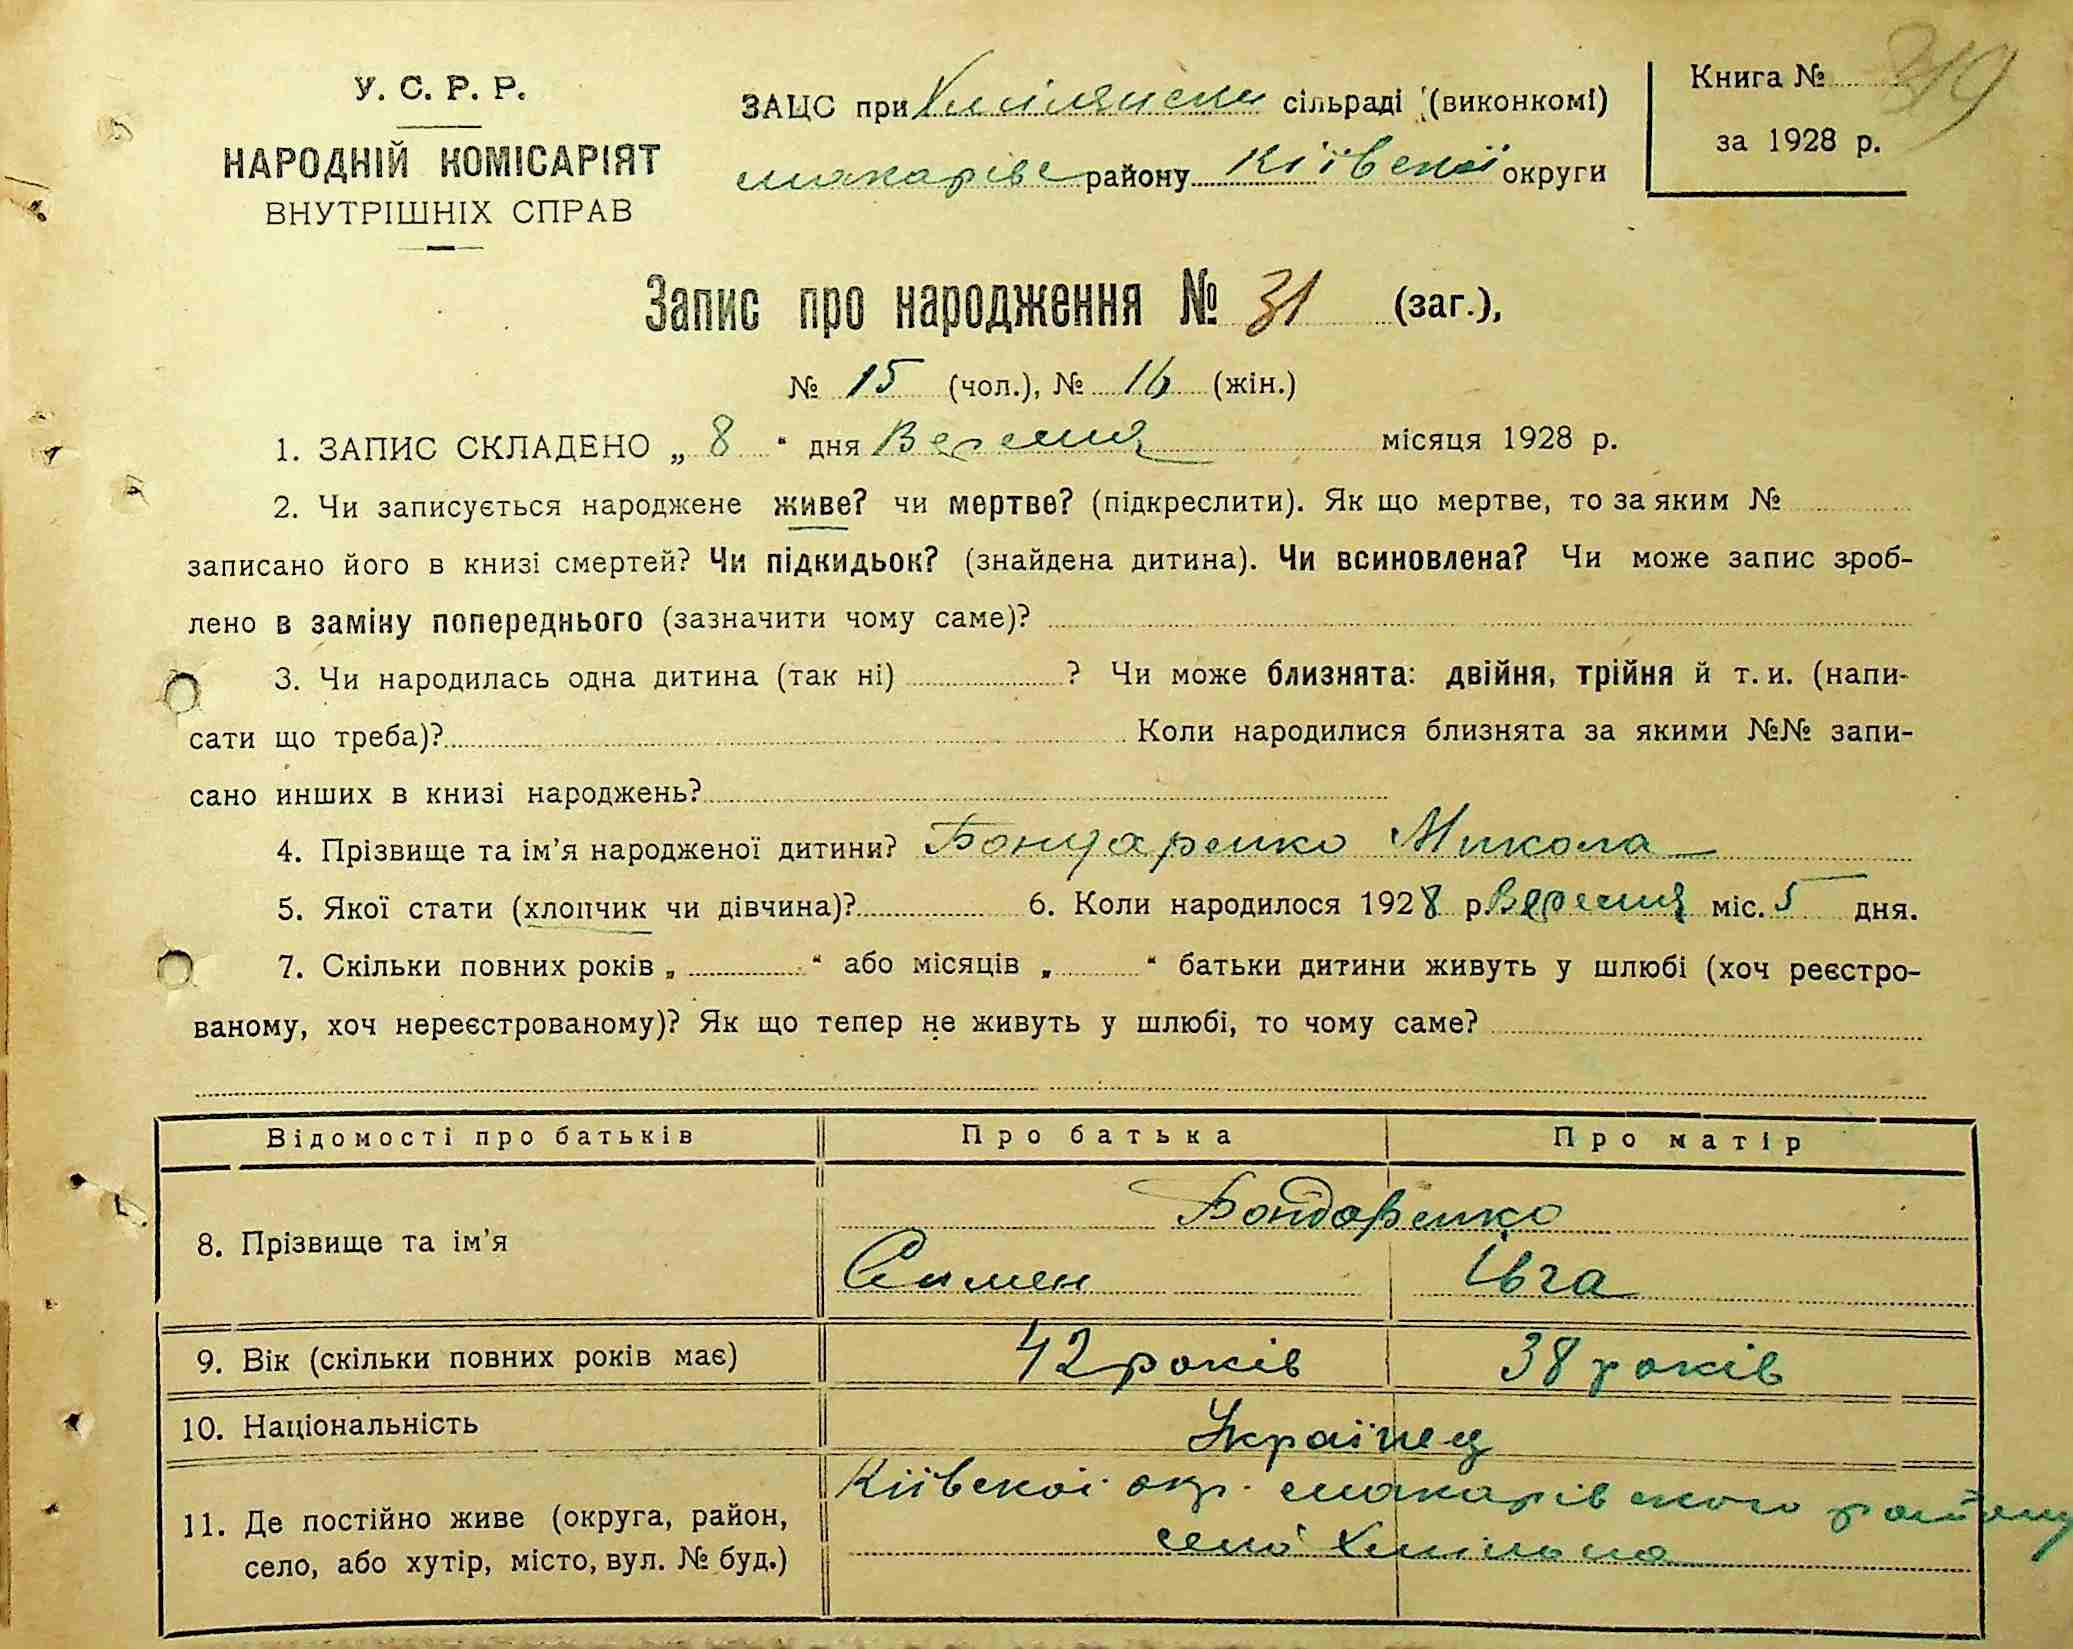 У. С. Р. Р.
НАРОДНІЙ КОМІСАРІЯТ
ВНУТРІШНІХ СПРАВ
ЗАЦС при Хмілянски сільраді (виконкомі)
макарівс району Київскої округи
Книга № 319
за 1928 р.
Запис про народження № 31 (заг.),
№ 15 (чол.), № 16 (жін.)
1. ЗАПИС СКЛАДЕНО „ 8 “ дня Вересня місяця 1928 р.
2. Чи записується народжене живе? чи мертве? (підкреслити). Як що мертве, то за яким №
записано його в книзі смертей? Чи підкидьок? (знайдена дитина). Чи всиновлена? Чи може запис зроб-
лено в заміну попереднього (зазначити чому саме)?
3. Чи народилась одна дитина (так ні) ? Чи може близнята: двійня, трійня й т. и. (напи-
сати що треба)? Коли народилися близнята за якими №№ запи-
сано инших в книзі народжень?
4. Прізвище та ім’я народженої дитини? Бондаренко Микола
5. Якої стати (хлопчик чи дівчина)? 6. Коли народилося 1928 р. Вересня міс. 5 дня.
7. Скільки повних років „ “ або місяців „ “ батьки дитини живуть у шлюбі (хоч реєстро-
ваному, хоч нереєстрованому)? Як що тепер не живуть у шлюбі, то чому саме?
Відомості про батьків Про батька Про матір
8. Прізвище та ім’я Бондаренко
Семен Івга
9. Вік (скільки повних років має) 42 років 38 років
10. Національність Українец
11. Де постійно живе (округа, район, село, або хутір, місто, вул. № буд.) Київскої окр. макарівского району
село Хмільна